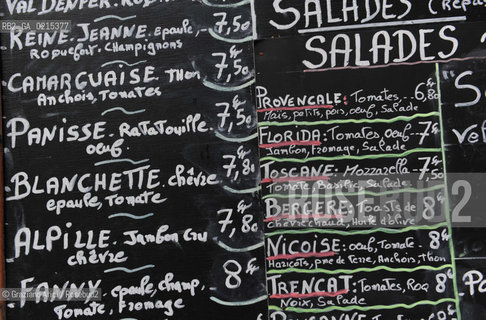 VALDENFER. Roque
7,50
REINE JEANNE. épaule,
Roquefort, Champignons
7,50€
CAMARGUAISE. Thon
Anchois, Tomates
7,50€
PANISSE. RATATOUILLE
œuf
7,50€
BLANCHETTE. chèvre
épaule, Tomate
7,80€
ALPILLE. Jambon Cru
chèvre
7,80€
FANNY. épaule, champ.
Tomate, fromage
8€
SALADES (Repas
SALADES
PROVENCALE: Tomates, 6,80€
Maïs, petits, pois, œuf, Salade
FLORIDA: Tomates, œuf 7€
Jambon, fromage, Salade
TOSCANE: Mozzarella 7,50€
Tomate, Basilic, Salade
BERGERE: Toasts de 8€
chèvre chaud, Huile d'olive
NICOISE: œuf, Tomate 8€
Haricots, pme de Terre, Anchois, thon
TRENCAT: Tomates, Roq 8€
Noix, Salade